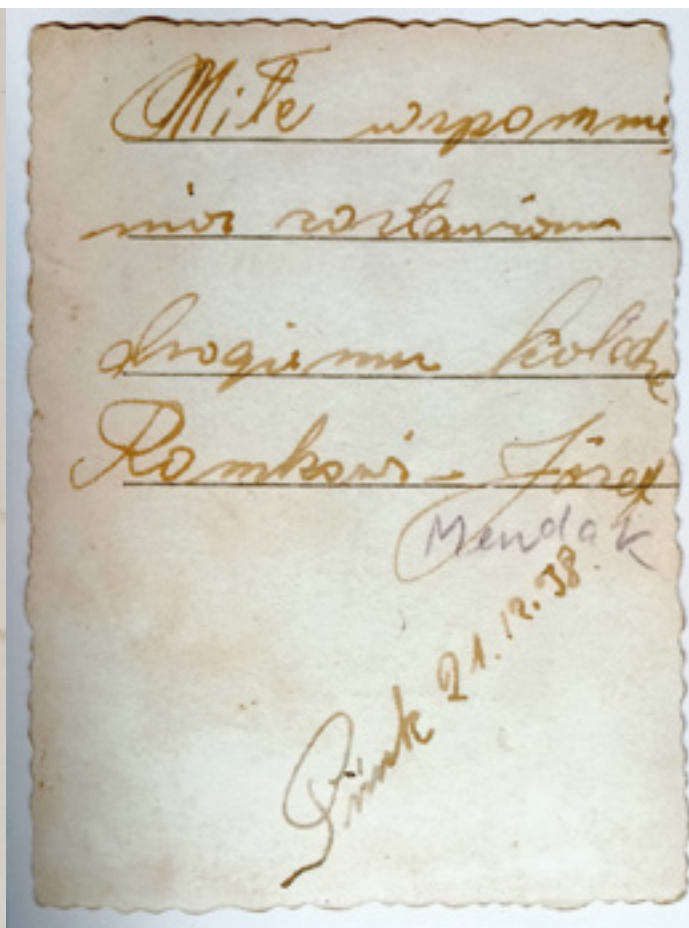 Miłe wspomnie
nia zostawiam
drogiemu koledze
Romkowi - Józef
Mendak
Pińsk 21.12.38.